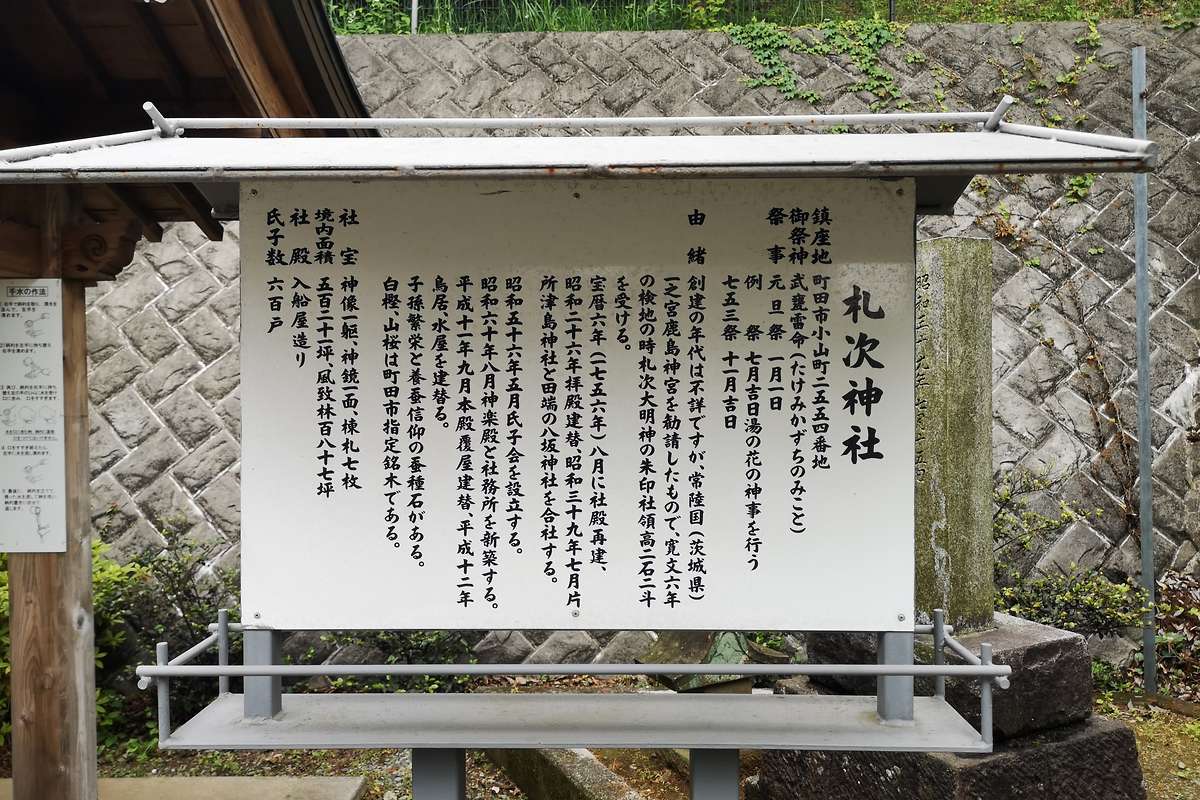 札次神社
鎮座地 町田市小山町二五五四番地
御祭神 武甕雷命(たけみかずちのみこと)
祭事 元旦祭 一月一日
例祭 七月吉日湯の花の神事を行う
七五三祭 十一月吉日
由緒 創建の年代は不詳ですが、常陸国(茨城県)
一之宮鹿島神宮を勧請したもので、寛文六年
の検地の時札次大明神の朱印社領高二石二斗
を受ける。
宝暦六年(一七五六年)八月に社殿再建、
昭和二十六年拝殿建替、昭和三十九年七月片
所津島神社と田端の八坂神社を合社する。
昭和五十六年五月氏子会を設立する。
昭和六十年八月神楽殿と社務所を新築する。
平成十一年九月本殿覆屋建替、平成十二年
鳥居、水屋を建替る。
子孫繁栄と養蚕信仰の蚕種石がある。
白樫、山桜は町田市指定銘木である。
社宝 神像一躯、神鏡一面、棟札七枚
境内面積 五百二十一坪、風致林百八十七坪
社殿 入船屋造り
氏子数 六百戸
手水の作法